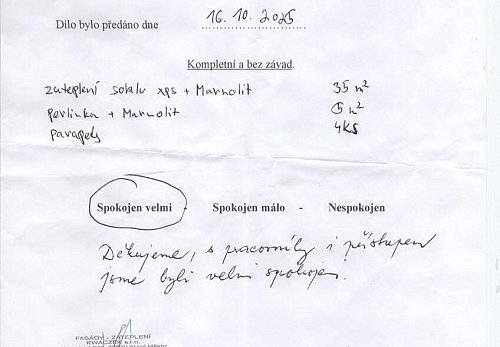 Dílo bylo předáno dne 16.10.2025
Kompletní a bez závad.
zateplení soklu xps + Marmolit 35 m²
perlinka + Marmolit m²
parapety 4ks
Spokojen velmi - Spokojen málo - Nespokojen
Děkujeme, s pracovníky i přístupem
jsme byli velmi spokojeni.
FASÁDY - ZATEPLENÍ
KWACZEK s.r.o.